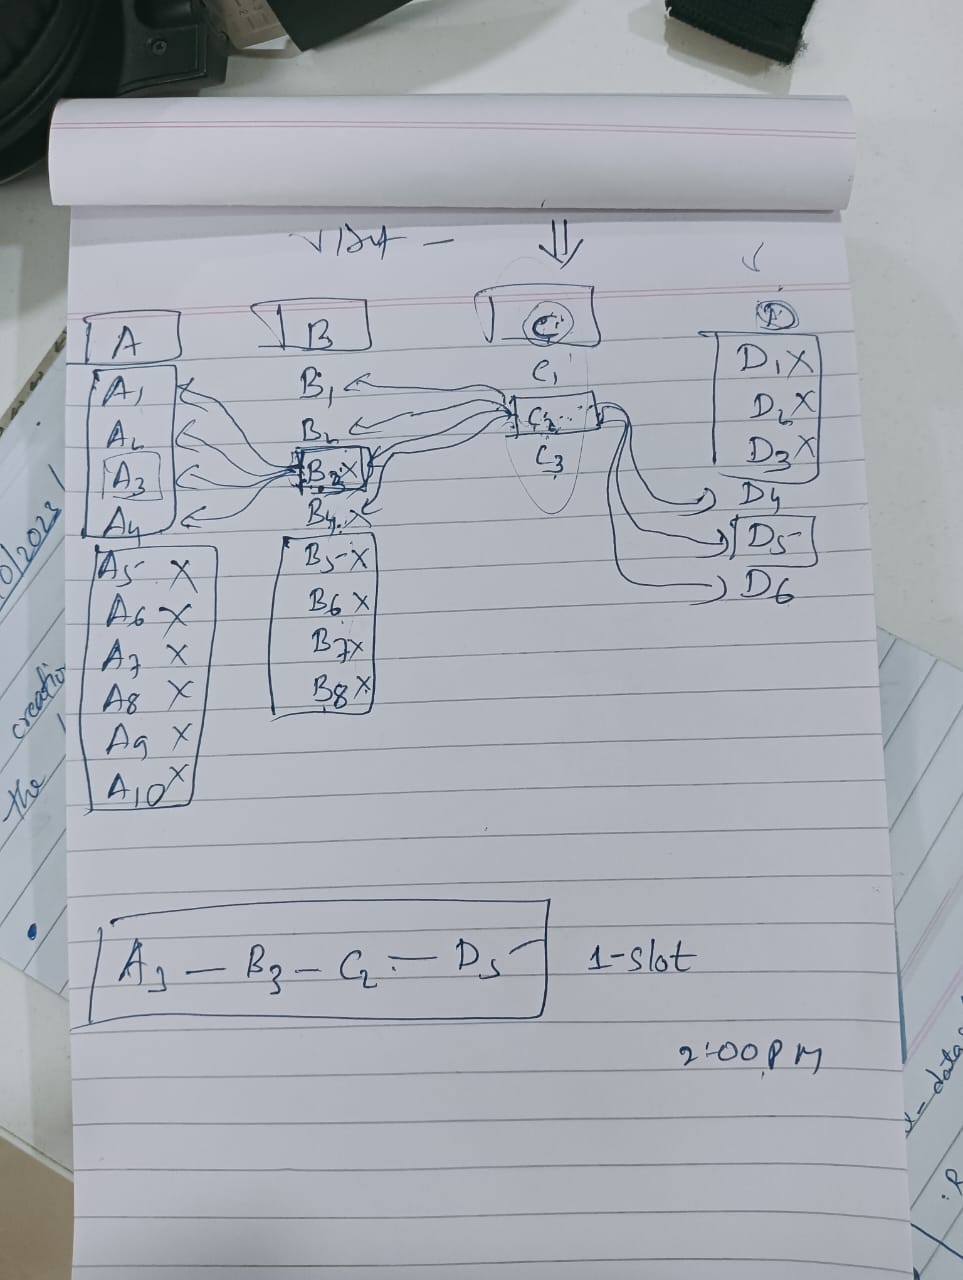 A B C D
A1 B1 C1 D1 X
A2 B2 C2 D2 X
A3 B3 X C3 D3 X
A4 B4 X D4
A5 X B5 X D5
A6 X B6 X D6
A7 X B7 X
A8 X B8 X
A9 X
A10 X
A3 — B3 — C2 — D5 1-slot
2:00 PM
0/2023
creatio
the
data